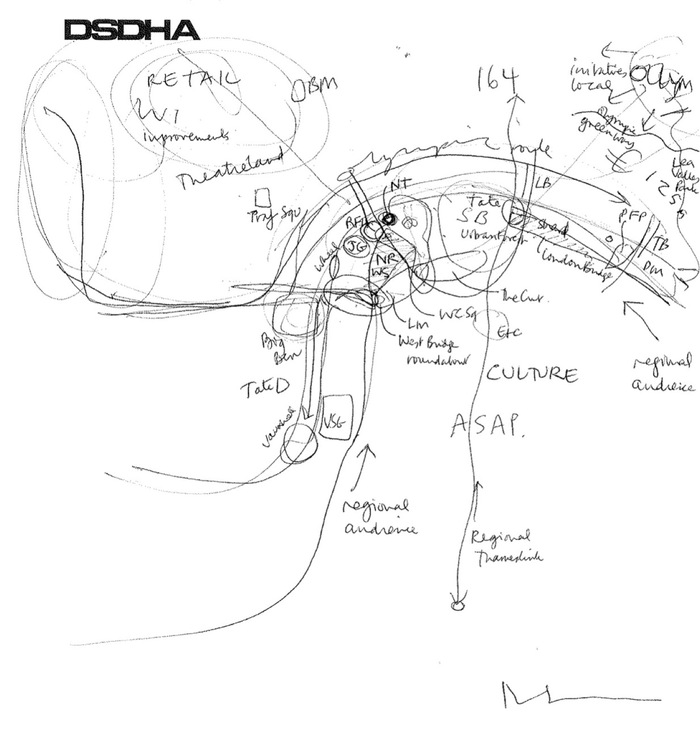 DSDHA
RETAIL
BM
improvements
Theatreland
Traf Squ
164
initiatives
local
Olympic
greenway
Lea
Valley
Park
Olympic
NT
LB
RFH
Tate
SB
Urban forest
London Bridge
PFP
TB
DM
JG
wheel
NR
WS
The Cut.
WC Sq
LM
West Bridge
roundabout
E+C
Big
Ben
Tate D
Vauxhall
VSG
CULTURE
ASAP.
regional
audience
regional
audience
Regional
Thameslink